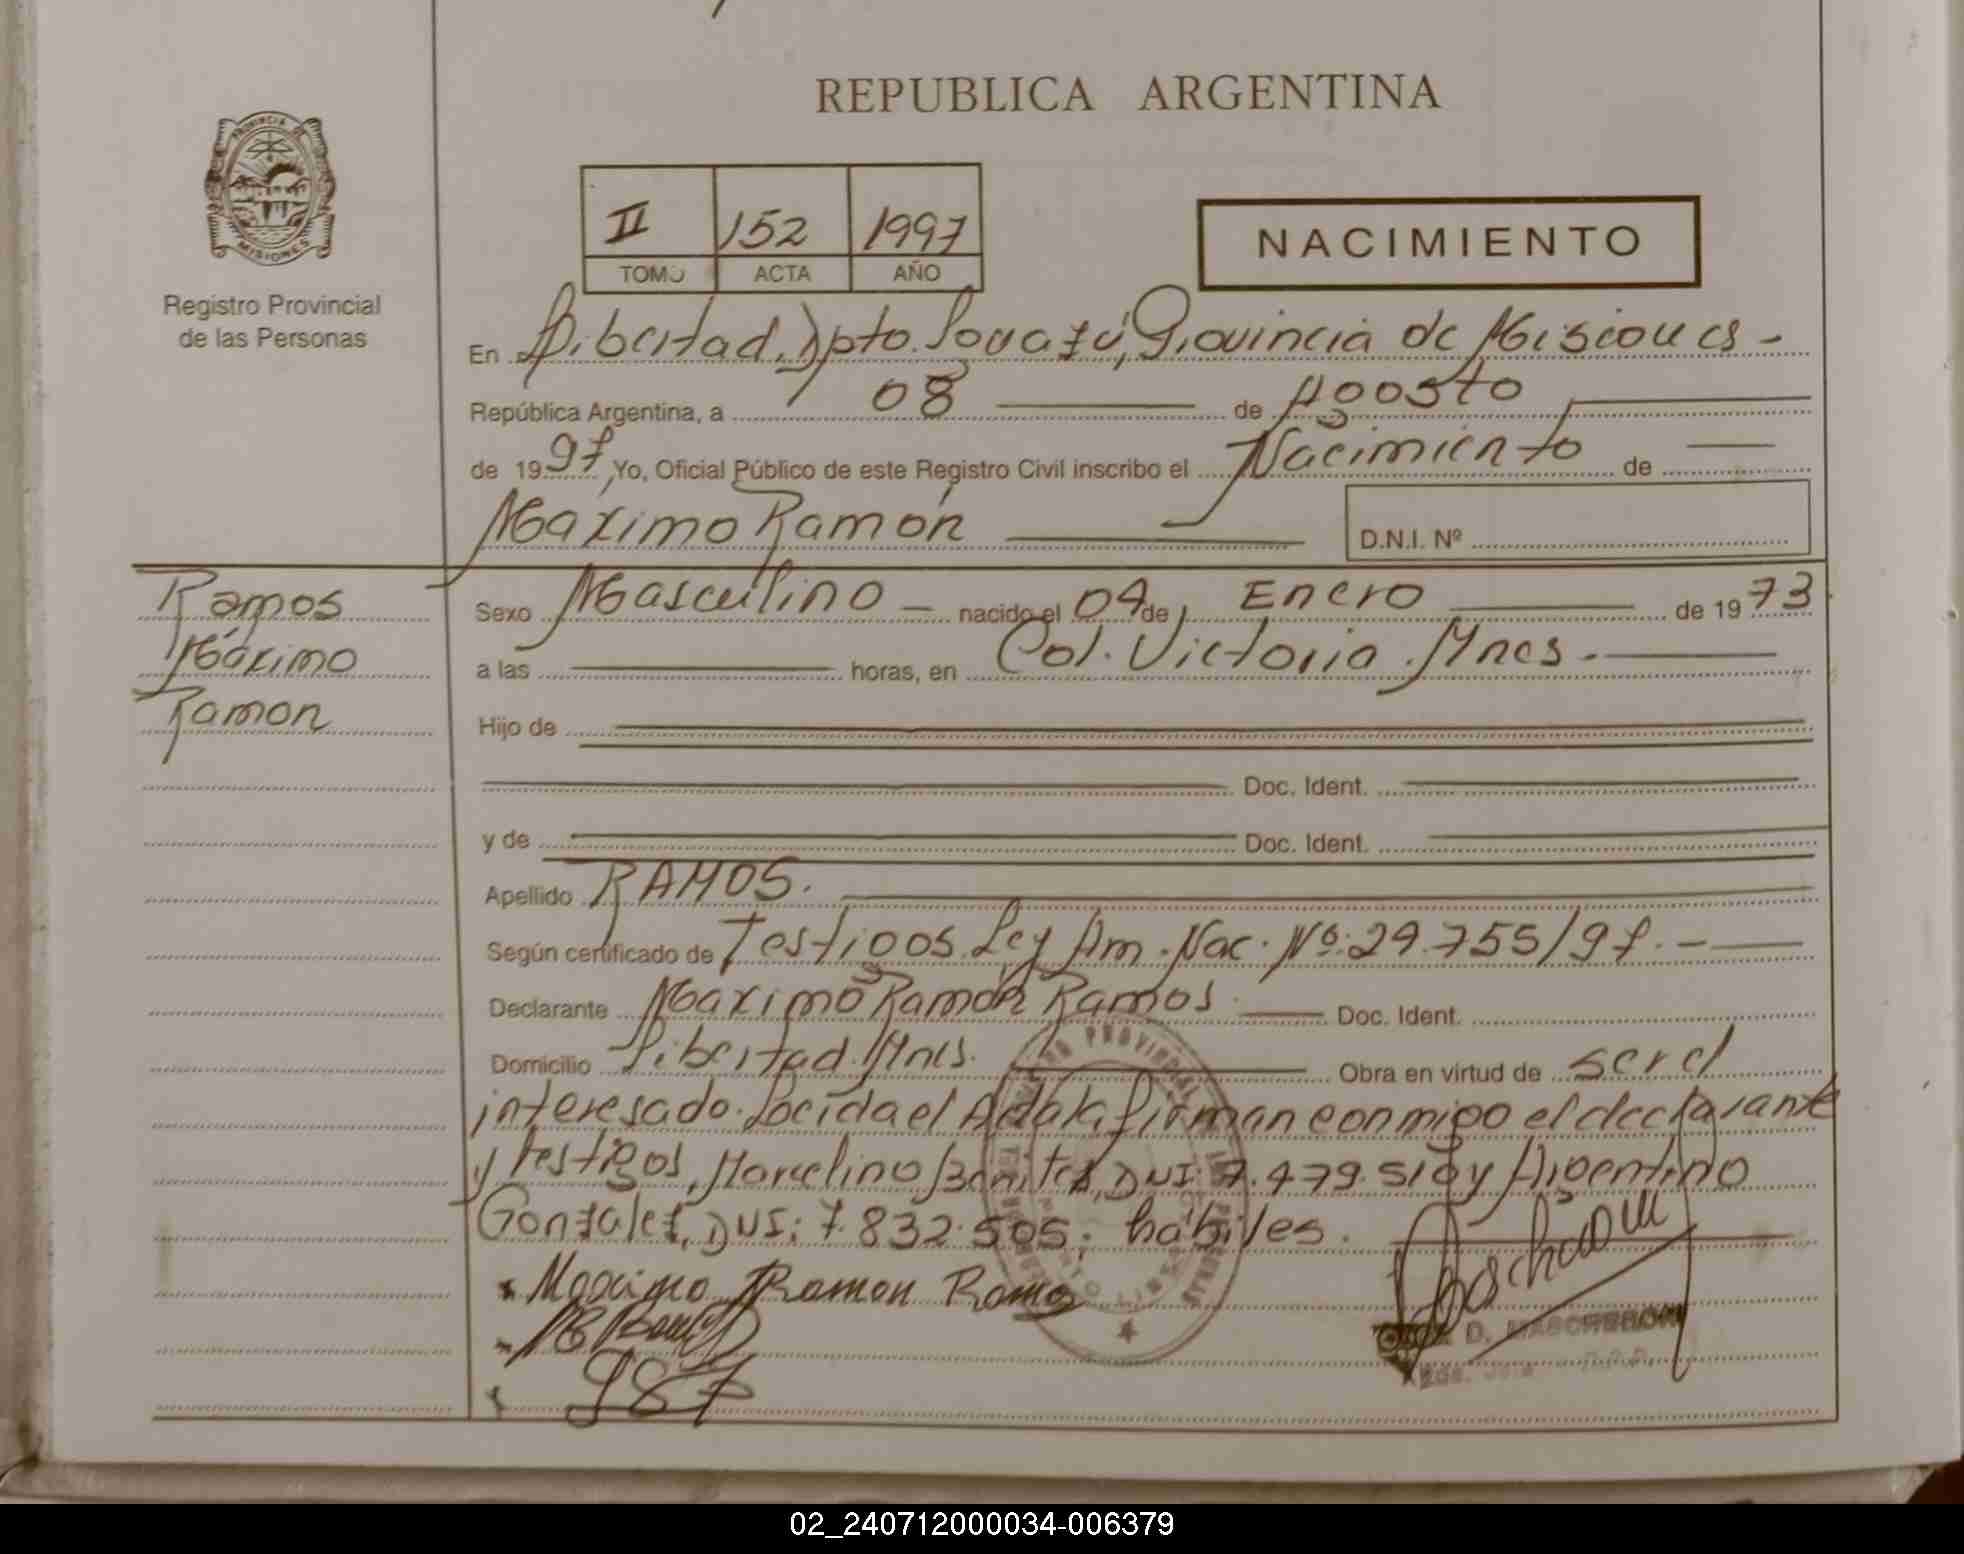 REPUBLICA ARGENTINA
PROVINCIA DE
MISIONES
Registro Provincial
de las Personas
II 152 1997
TOMO ACTA AÑO
NACIMIENTO
En Libertad, Dpto. Iguazú, Provincia de Misiones -
República Argentina, a 08 de Agosto
de 1997, Yo, Oficial Público de este Registro Civil inscribo el Nacimiento de
Maximo Ramón
D.N.I. Nº
Ramos
Máximo
Ramon
Sexo Masculino - nacido el 04 de Enero de 1973
a las horas, en Col. Victoria. Mnes -
Hijo de
Doc. Ident.
y de Doc. Ident.
Apellido RAMOS.
Según certificado de Testigos. Ley Am. Nac. Nº: 24.755/97. -
Declarante Maximo Ramón Ramos Doc. Ident.
Domicilio Libertad. Mnes. Obra en virtud de ser el
interesado. Leída el Acta, firman conmigo el declarante
y testigos, Marcelino Benitez, DNI: 7.479.510 y Argentino
Gonzalez, DNI: 7.832.505; hábiles.
Maximo Ramon Ramos
D. MASCHERONI
02_240712000034-006379